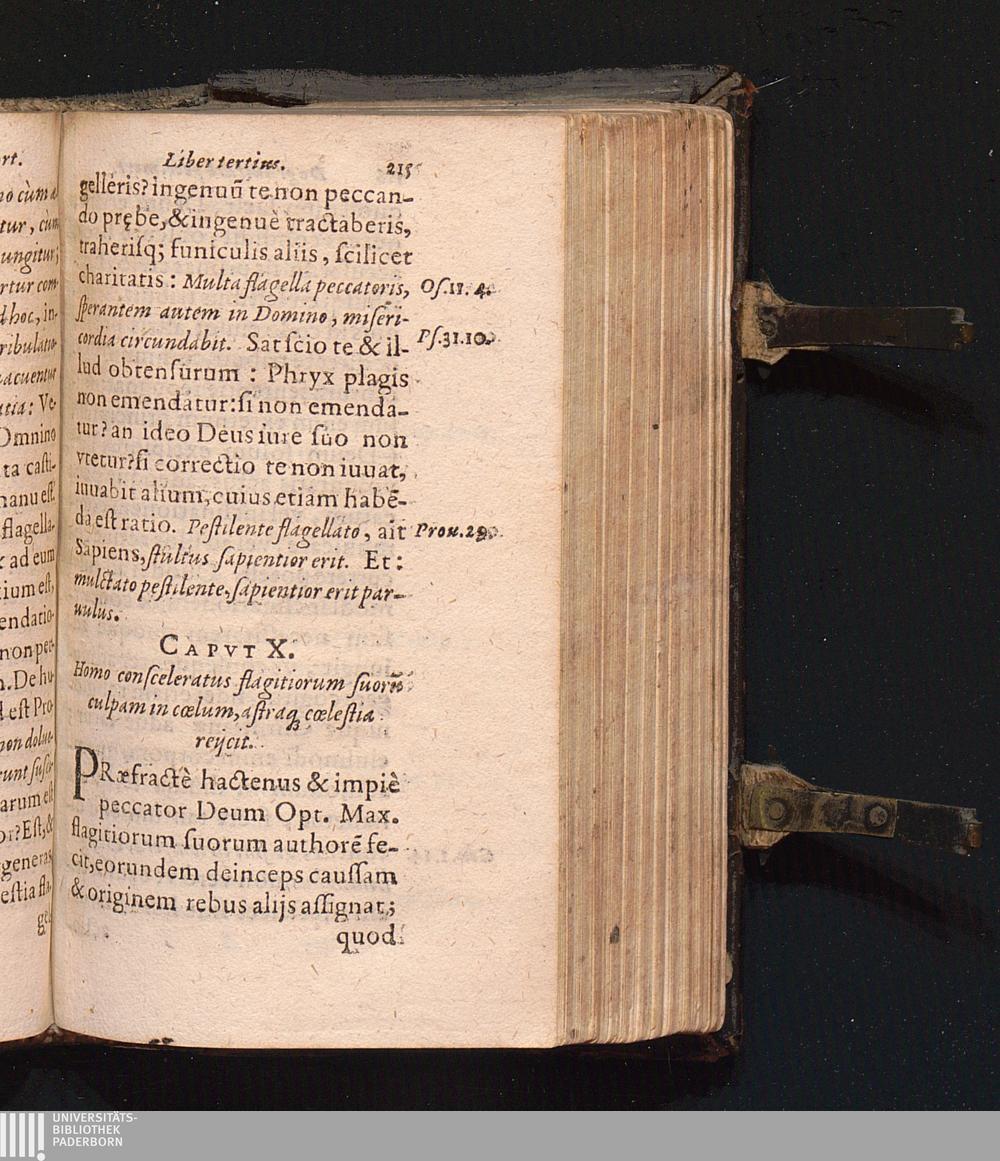 Liber tertius. 215
gelleris? ingenuũ te non peccan-
do prębe, & ingenuè tractaberis,
traherisq; funiculis aliis, scilicet
charitatis: Multa flagella peccatoris, Os. 11. 4.
sperantem autem in Domino, miseri-
cordia circundabit. Sat scio te & il- Ps. 31. 10.
lud obtensurum: Phryx plagis
non emendatur: si non emenda-
tur? an ideo Deus iure suo non
vtetur? si correctio te non iuuat,
iuuabit alium, cuius etiam habẽ-
da est ratio. Pestilente flagellato, ait Prou. 29.
Sapiens, stultus sapientior erit. Et:
mulctato pestilente, sapientior erit par-
uulus.
CAPVT X.
Homo consceleratus flagitiorum suorũ
culpam in cœlum, astraq; cœlestia
reijcit.
PRæfractè hactenus & impiè
peccator Deum Opt. Max.
flagitiorum suorum authorẽ fe-
cit, eorundem deinceps caussam
& originem rebus alijs assignat;
quod
rt.
no cùm
tur, cùm
ungitur;
rtur com-
d hoc, in-
ribulatio-
uacuentur
Ve-
Omnino
ta casti-
manu est.
flagella-
ad eum
tium est,
endatio-
non pec-
De hu-
est Pro-
non dolue-
runt
arum est
or? Est, &
generas,
estia fla-
gel-
UNIVERSITÄTS-
BIBLIOTHEK
PADERBORN